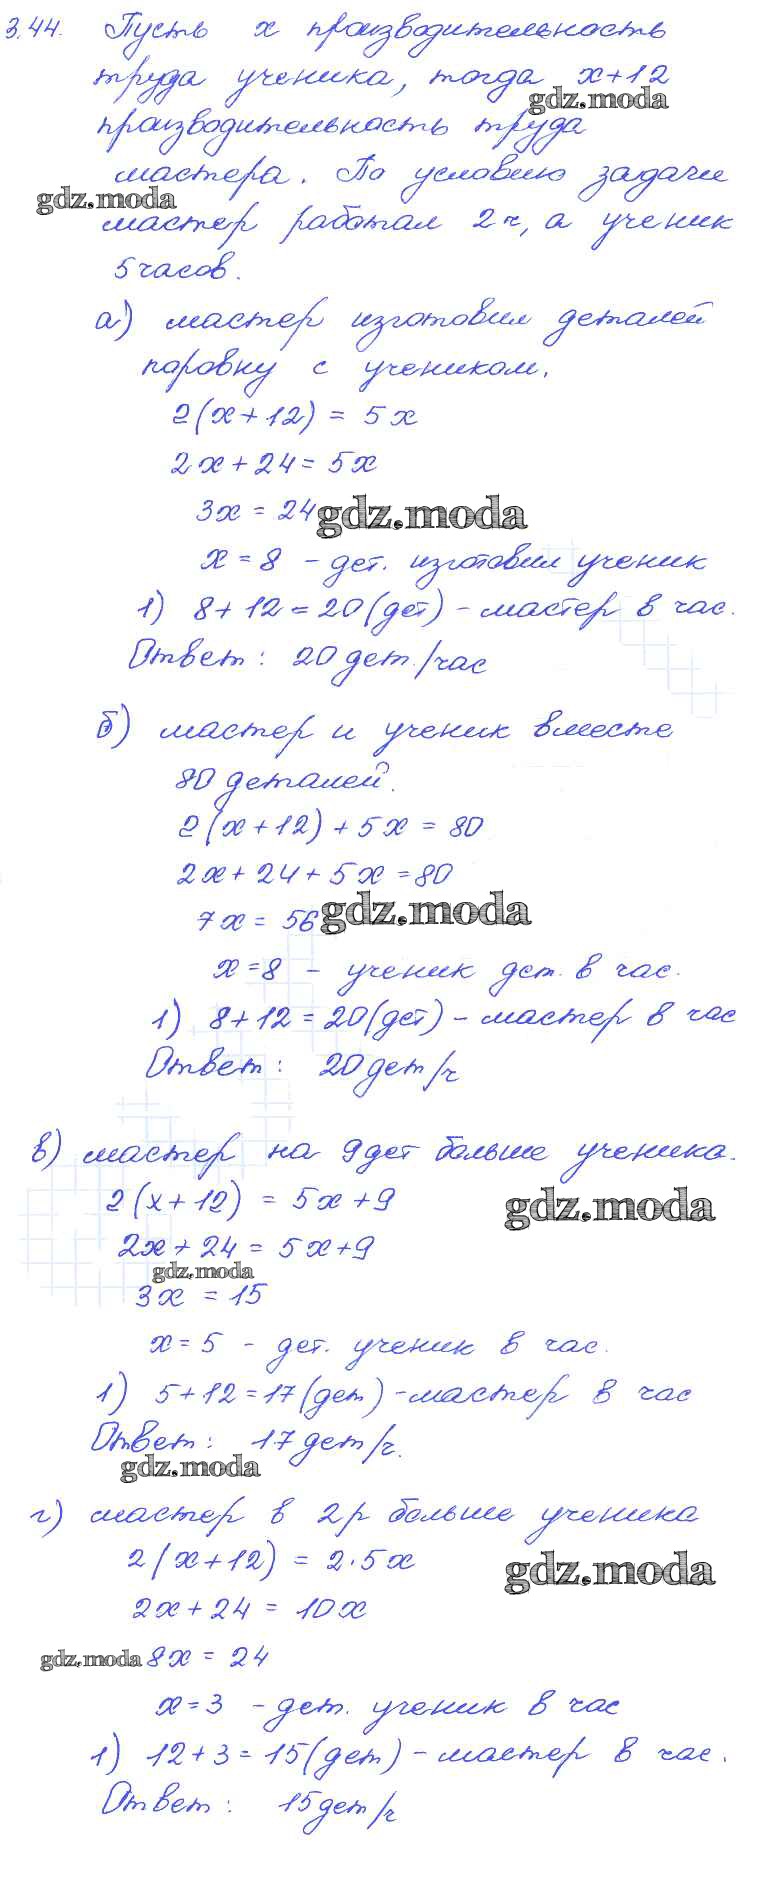 3.44. Пусть x производительность
труда ученика, тогда x+12
gdz.moda
производительность труда
мастера. По условию задачи
gdz.moda
мастер работал 2ч, а ученик
5 часов.
а) мастер изготовил деталей
поровну с учеником.
2(x+12) = 5x
2x+24 = 5x
3x = 24
gdz.moda
x = 8 - дет. изготовил ученик
1) 8+12 = 20(дет) - мастер в час.
Ответ: 20 дет./час
б) мастер и ученик вместе
80 деталей.
2(x+12) + 5x = 80
2x + 24 + 5x = 80
7x = 56
gdz.moda
x = 8 - ученик дет. в час.
1) 8+12 = 20(дет) - мастер в час
Ответ: 20 дет/ч
в) мастер на 9 дет больше ученика.
2(x+12) = 5x+9
gdz.moda
2x+24 = 5x+9
gdz.moda
3x = 15
x = 5 - дет. ученик в час.
1) 5+12 = 17(дет) - мастер в час
Ответ: 17 дет/ч.
gdz.moda
г) мастер в 2р больше ученика
2(x+12) = 2·5x
gdz.moda
2x+24 = 10x
gdz.moda 8x = 24
x = 3 - дет. ученик в час
1) 12+3 = 15(дет) - мастер в час.
Ответ: 15дет/ч